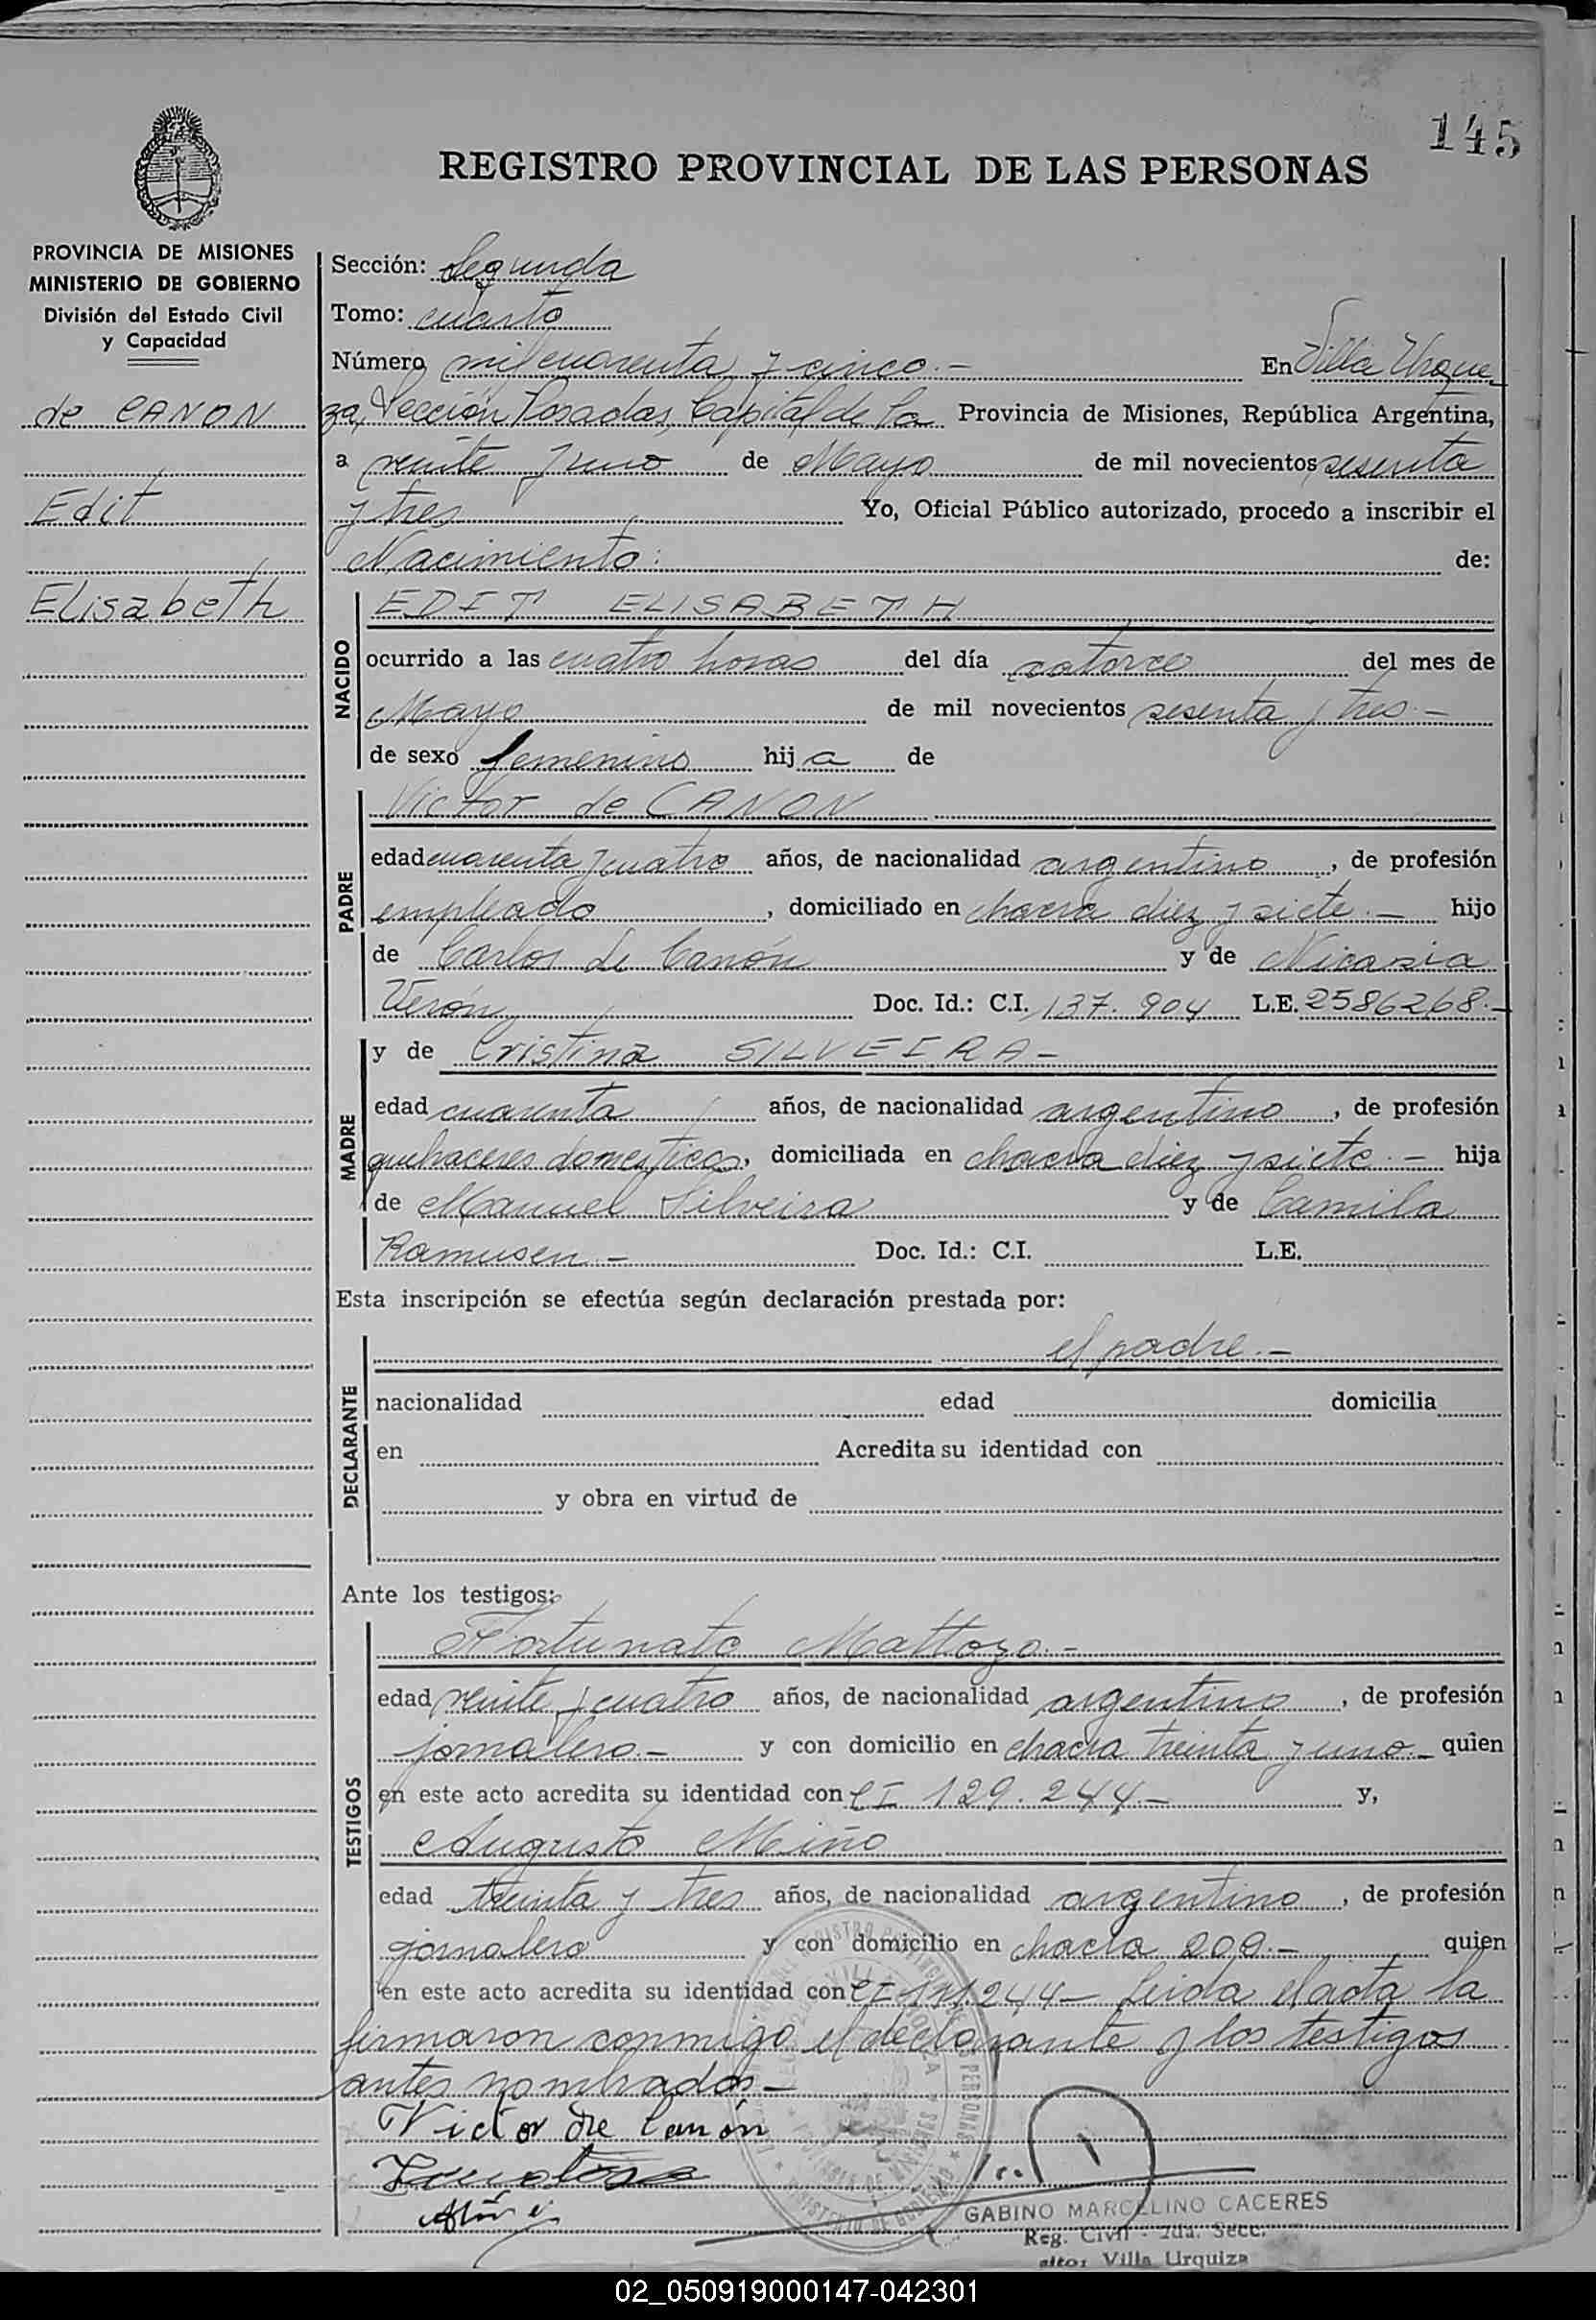 145
REGISTRO PROVINCIAL DE LAS PERSONAS
PROVINCIA DE MISIONES
MINISTERIO DE GOBIERNO
División del Estado Civil
y Capacidad
de CANON
Edit
Elisabeth
Sección: Segunda
Tomo: cuarto
Número mil cuarenta y cinco.- En Villa Urque
za, Sección Posadas, Capital de la Provincia de Misiones, República Argentina,
a veinte y uno de Mayo de mil novecientos sesenta
y tres Yo, Oficial Público autorizado, procedo a inscribir el
Nacimiento: de:
NACIDO
EDIT ELISABETH
ocurrido a las cuatro horas del día catorce del mes de
Mayo de mil novecientos sesenta y tres.-
de sexo femenino hija de
PADRE
Victor de CANON
edad cuarenta y cuatro años, de nacionalidad argentino, de profesión
empleado, domiciliado en chacra diez y siete.- hijo
de Carlos de Canón y de Nicasia
Verón Doc. Id.: C.I. 137.904 L.E. 2586268.-
MADRE
y de Cristina SILVEIRA-
edad cuarenta años, de nacionalidad argentino, de profesión
quehaceres domesticos, domiciliada en chacra diez y siete.- hija
de Manuel Silveira y de Camila
Ramusen.- Doc. Id.: C.I. L.E.
Esta inscripción se efectúa según declaración prestada por:
DECLARANTE
el padre.-
nacionalidad edad domicilia
en Acredita su identidad con
y obra en virtud de
Ante los testigos:
TESTIGOS
Fortunato Mattozo.-
edad veinte y cuatro años, de nacionalidad argentino, de profesión
jornalero.- y con domicilio en chacra treinta y uno.- quien
en este acto acredita su identidad con CI 129.244.- y,
Augusto Miño
edad treinta y tres años, de nacionalidad argentino, de profesión
jornalero y con domicilio en chacra 209.- quien
en este acto acredita su identidad con CI 111.244- Leida el acta la
firmaron conmigo el declarante y los testigos
antes nombrados-
Victor De Canón
GABINO MARCELINO CACERES
Reg. Civil - 2da. Secc.
Villa Urquiza
02_050919000147-042301